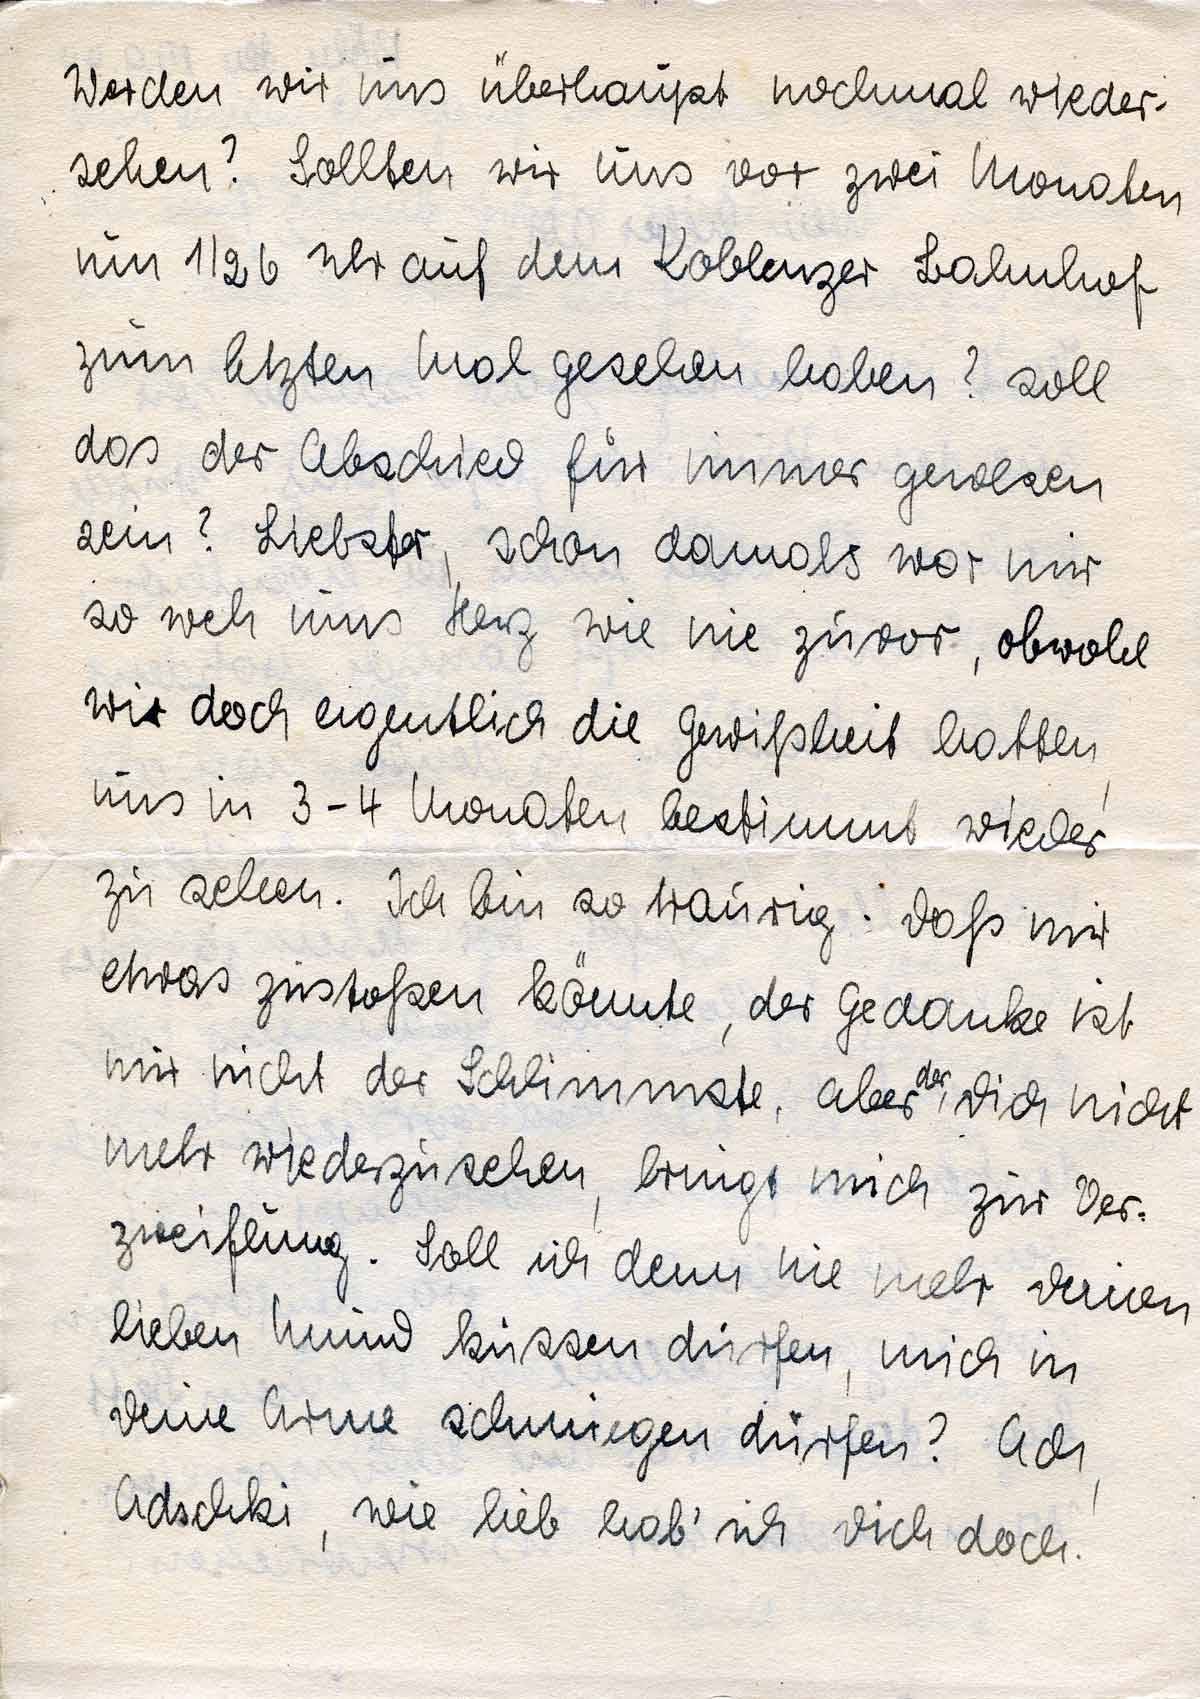 Werden wir uns überhaupt nochmal wieder-
sehen? Sollten wir uns vor zwei Monaten
um 1/2 6 Uhr auf dem Koblenzer Bahnhof
zum letzten Mal gesehen haben? Soll
das der Abschied für immer gewesen
sein? Liebster, schon damals war mir
so weh ums Herz wie nie zuvor, obwohl
wir doch eigentlich die Gewißheit hatten,
uns in 3-4 Monaten bestimmt wieder
zu sehen. Ich bin so traurig. Daß mir
etwas zustoßen könnte, der Gedanke ist
mir nicht der Schlimmste, aber der, Dich nicht
mehr wiederzusehen, bringt mich zur Ver-
zweiflung. Soll ich denn nie mehr Deinen
lieben Mund küssen dürfen, mich in
Deine Arme schmiegen dürfen? Ach,
Adschki, wie lieb hab' ich Dich doch.